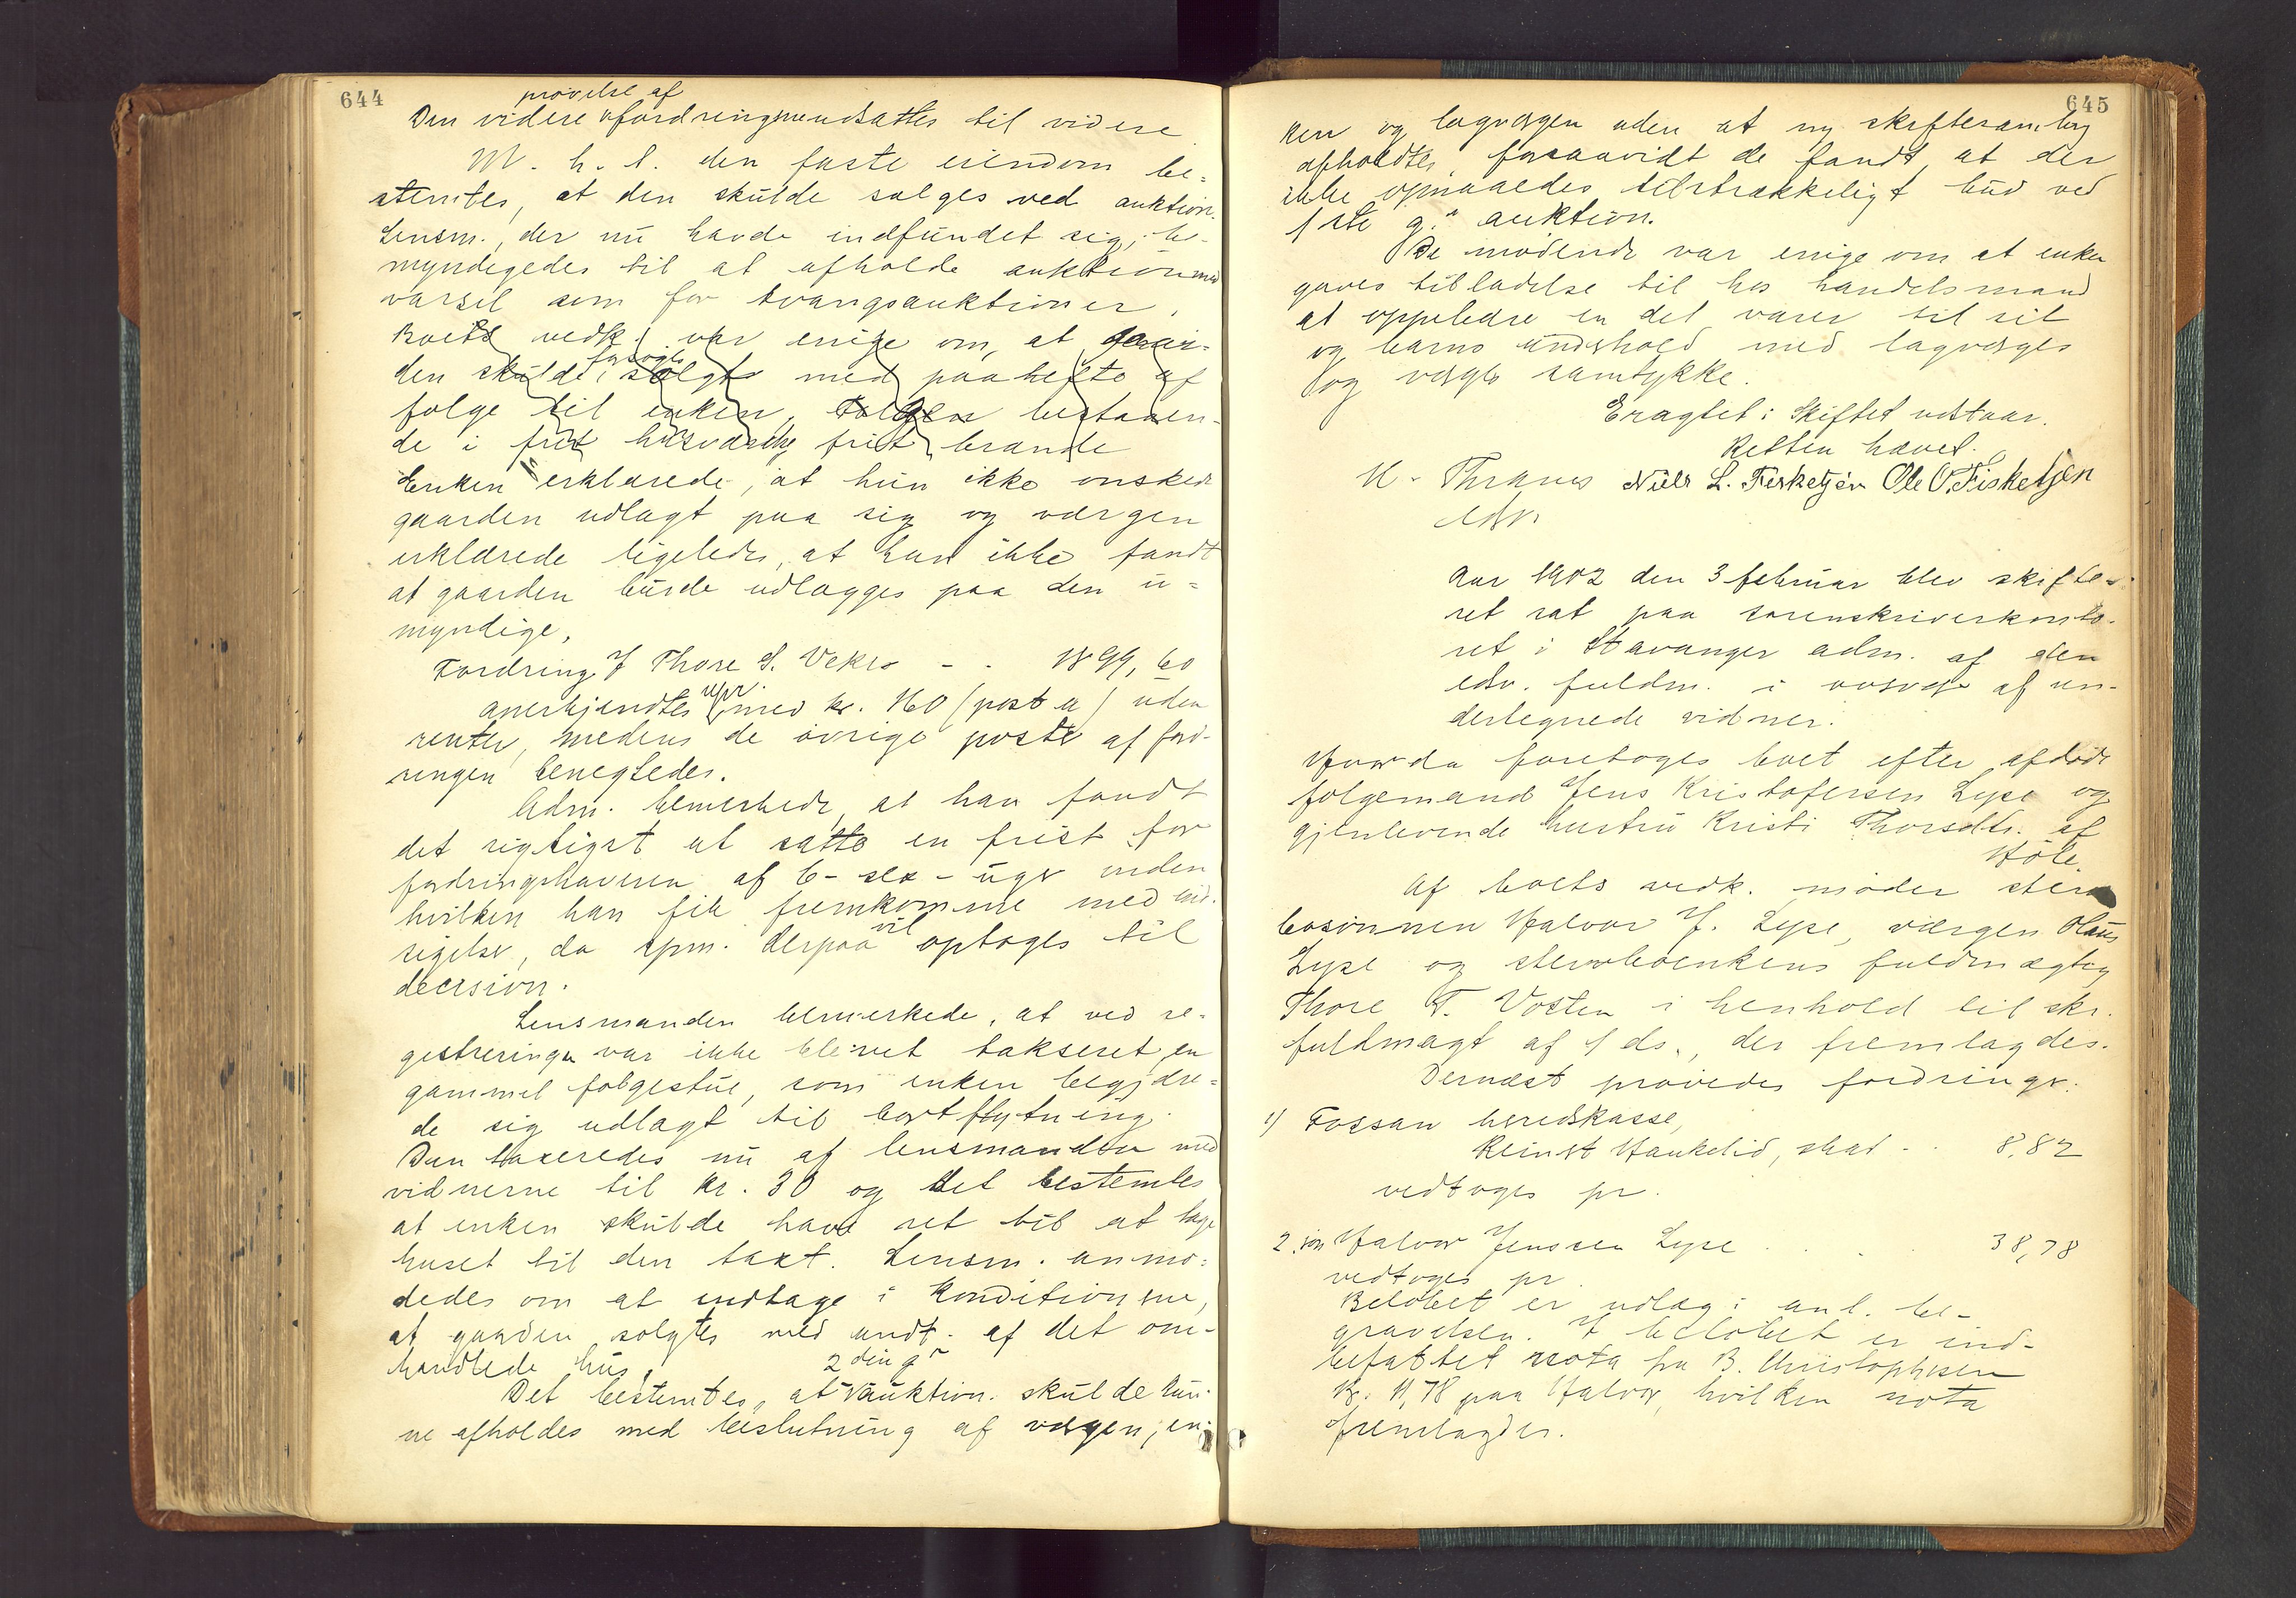 644
prøvelse af
Den videre fordringer udsattes til videre
M. h. t. den faste eiendom be=
stemtes, at den skulde sælges ved auktion.
Lensm., der nu havde indfundet sig, be-
myndigedes til at afholde auktion med
varsel som for tvangsauktioner.
Boets vedk. var enige om, at gaar=
den skulde forsøgts solgt med paahefte af
følge til enken, følgen bestaaen-
de i frit husværelse frit brænde
Enken erklærede, at hun ikke ønskede
gaarden udlagt paa sig og værgen
erklærede ligeledes, at han ikke fandt
at gaarden burde udlægges paa den u=
myndige.
Fordring f Thore S. Vekro - - 1899,60
anerkjendtes upr. med kr. 160 (post a) uden
renter, medens de øvrige poster af ford-
ringen benegtedes.
Adm. bemerkede, at han fandt
det rigtigst at sætte en frist for
fordringshaveren af 6 - sex - uger inden
hvilken han fik fremkomme med ind-
sigelse, da spm. derpaa vil optages til
decision.
Lensmanden bemerkede, at ved re=
gistreringen var ikke bleivet takseret en
gammel følgestue, som enken begjære=
de sig udlagt til bortflytning.
Den taxeredes nu af lensmanden med
vidnerne til kr. 30 og det bestemtes
at enken skulde have ret til at tage
huset til den takt. Lensm. anmo=
dedes om at indtage i konditionerne,
at gaarden solgtes med undt. af det om-
handlede hus.
2den g.
Det bestemtes, at auktion skulde kun-
ne afholdes med beslutning af værgen, en-
645
ken og lagværgen uden at ny skiftesamling
afholdtes, forsaavidt de fandt, at der
ikke opnaaedes tilstrækkeligt bud ved
1ste g. auktion.
De mødende var enige om at enken
gaves tilladelse til hos handelsmand
at oppebære en del varer til sit
og barns underhold med lagværges
og værges samtykke.
Eragtet: Skiftet udstaar.
Retten hævet.
M. Thranes Niels L. Fisketjøn Ole O. Fisketjøn
edsv.
Aar 1902 den 3 februar blev skifte-
ret sat paa sorenskriverkonto-
ret i Stavanger adm. af den
edsv. fuldm. i overvær af un-
dertegnede vidner.
Hvor da foretoges boet efter afdøde
følgemand Jens Kristofersen Lyse og
gjenlevende hustru Kristi Thorsdtr. af
Høle.
Af boets vedk. møder sterv
bosønnen Halvor J. Lyse, værgen Klaus
Lyse og stervboenkens fuldmægtig
Thore T. Vosten i henhold til skr.
fuldmagt af 1 ds., der fremlagdes.
Dernæst prøvedes fordringer.
1) Fossan heredskasse,
Reinert Haukelid, skat - - 8,82
vedtoges pr.
2. søn Halvor Jenssen Lyse . . . 38,78
vedtoges pr.
Beløbet er udlæg i anl. be-
gravelsen. I beløbet er ind-
befattet nota fra B. Christophersen
kr. 11,78 paa Halvor, hvilken nota
fremlagdes.